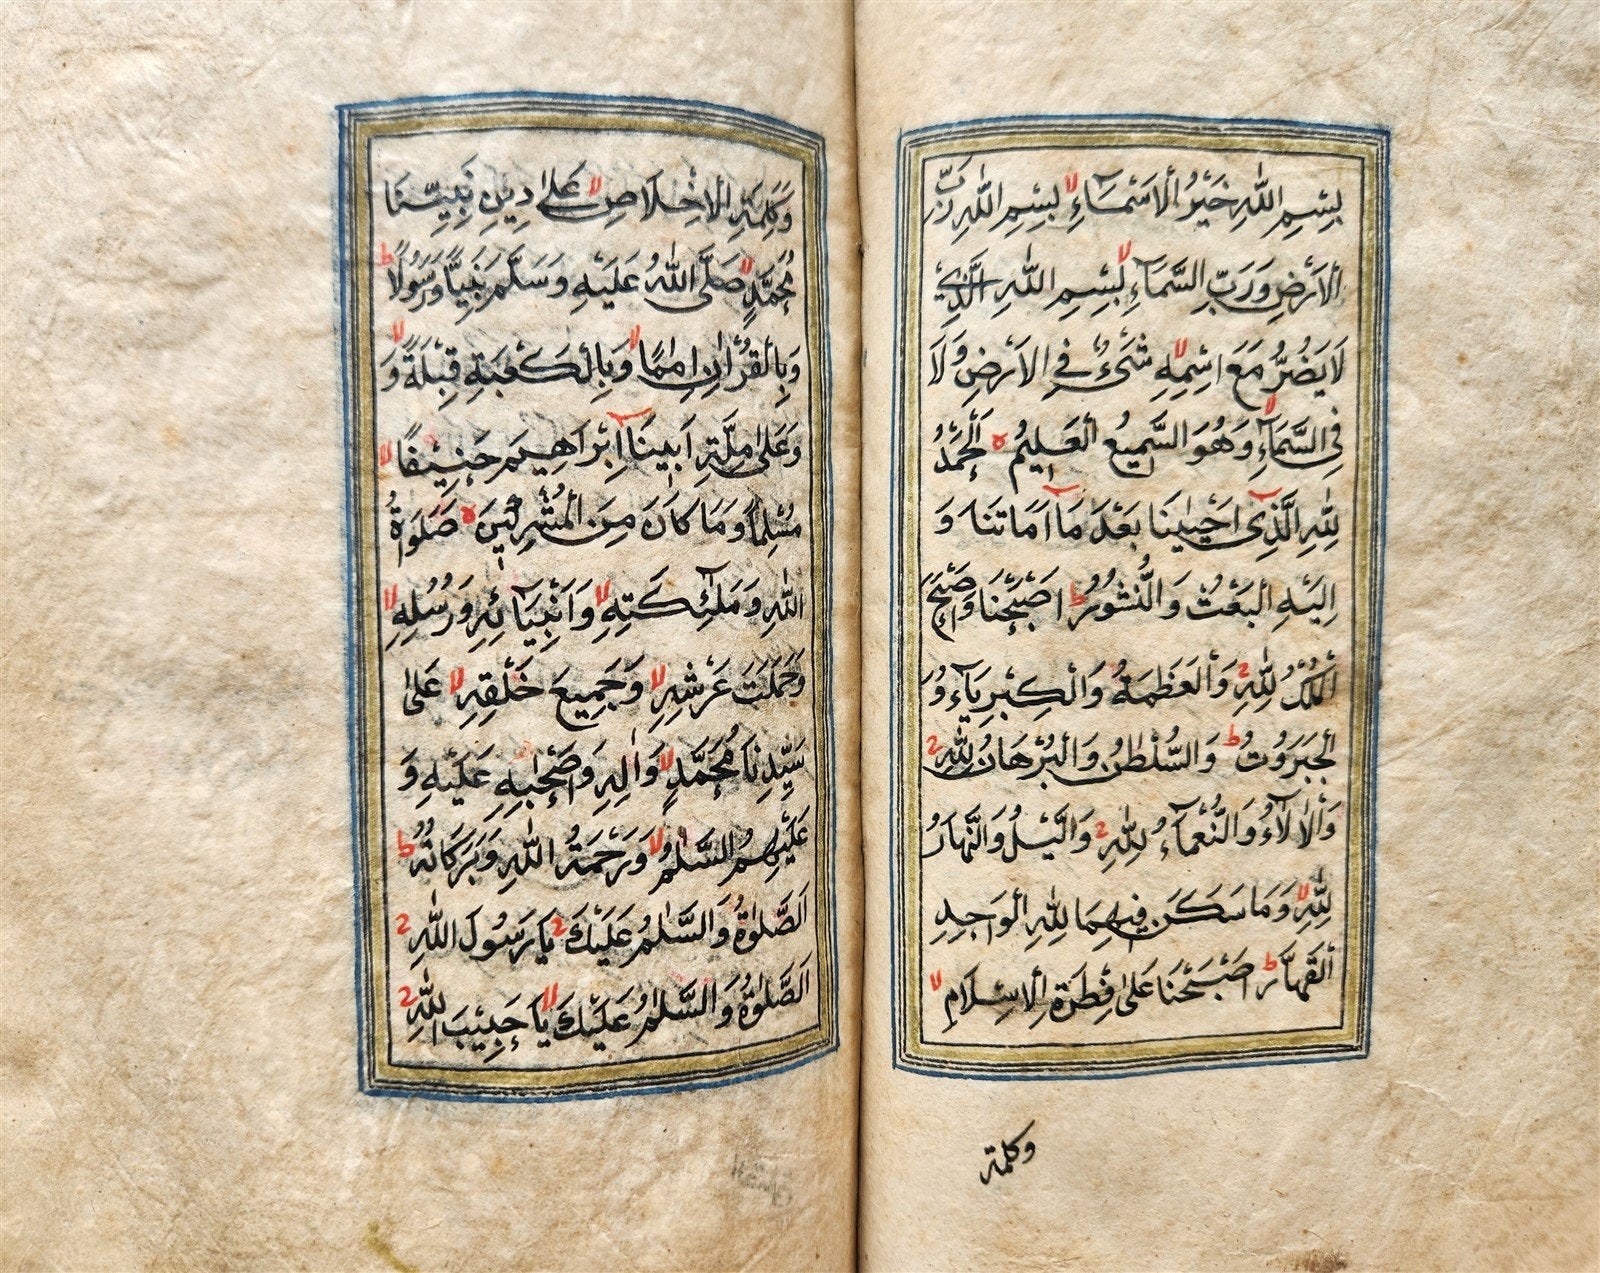 بِسْمِ اللّٰهِ خَيْرُ الْاَسْمَآءِ بِسْمِ اللّٰهِ رَبِّ
الْاَرْضِ وَرَبِّ السَّمَآءِ بِسْمِ اللّٰهِ الَّذِي
لَا يَضُرُّ مَعَ اسْمِهِ شَيْءٌ فِي الْاَرْضِ وَلَا
فِي السَّمَآءِ وَهُوَ السَّمِيعُ الْعَلِيمُ ه اَلْحَمْدُ
لِلّٰهِ الَّذِي اَحْيٰينَا بَعْدَ مَآ اَمَاتَنَا وَ
اِلَيْهِ الْبَعْثُ وَالنُّشُورُ ط اَصْبَحْنَا وَاَصْبَحَ
الْمُلْكُ لِلّٰهِ وَالْعَظَمَةُ وَالْكِبْرِيَآءُ وَ
الْجَبَرُوتُ ط وَالسُّلْطٰنُ وَالْبُرْهَانُ لِلّٰهِ
وَالْاٰلَآءُ وَالنَّعْمَآءُ لِلّٰهِ وَالَّيْلُ وَالنَّهَارُ
لِلّٰهِ وَمَا سَكَنَ فِيهِمَا لِلّٰهِ الْوَاحِدِ
الْقَهَّارِ ط اَصْبَحْنَا عَلٰى فِطْرَةِ الْاِسْلَامِ
وكلمة
وَكَلِمَةِ الْاِخْلَاصِ عَلٰى دِينِ نَبِيِّنَا
مُحَمَّدٍ صَلَّى اللّٰهُ عَلَيْهِ وَسَلَّمَ نَبِيًّا وَرَسُولًا ط
وَبِالْقُرْاٰنِ اِمٰمًا وَبِالْكَعْبَةِ قِبْلَةً وَ
وَعَلٰى مِلَّةِ اَبِينَآ اِبْرَاهِيمَ حَنِيفًا
مُسْلِمًا وَمَا كَانَ مِنَ الْمُشْرِكِينَ ه صَلَوَاةُ
اللّٰهِ وَمَلٰٓئِكَتِهِ وَاَنْبِيَآئِهِ وَرُسُلِهِ
وَحَمَلَتَ عَرْشِهِ وَجَمِيعَ خَلْقِهِ عَلٰى
سَيِّدِنَا مُحَمَّدٍ وَاٰلِهِ وَاَصْحٰبِهِ عَلَيْهِ وَ
عَلَيْهِمُ السَّلٰمُ وَرَحْمَةُ اللّٰهِ وَبَرَكَاتُهُ ط
اَلصَّلٰوةُ وَالسَّلٰمُ عَلَيْكَ يَا رَسُولَ اللّٰهِ
اَلصَّلٰوةُ وَالسَّلٰمُ عَلَيْكَ يَا حَبِيبَ اللّٰهِ